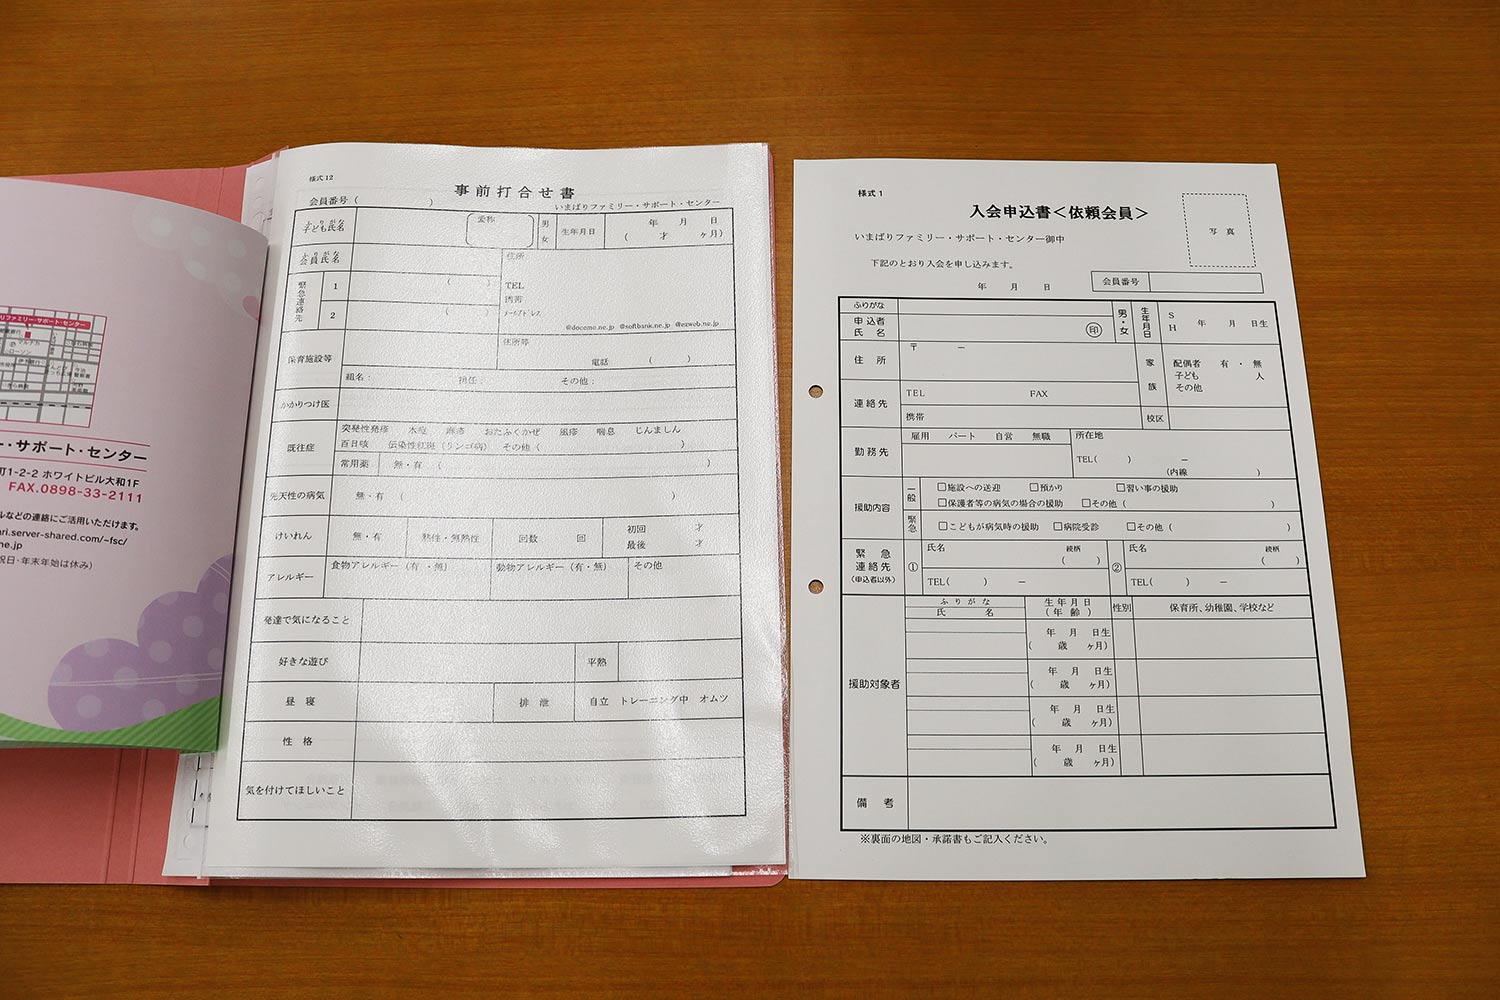 リファミリー・サポート・センター
マルナカ
ローソン
ー・サポート・センター
町1-2-2 ホワイトビル大和1F
FAX.0898-33-2111
ルなどの連絡にご活用いただけます。
ari.server-shared.com/~fsc/
ne.jp
祝日・年末年始は休み）
様式12
事前打合せ書
会員番号（　　　　　　　）
いまばりファミリー・サポート・センター
ふりがな
子ども氏名
愛称
男
女
生年月日
年　月　日
（　　才　　ヶ月）
ふりがな
会員氏名
住所
緊急連絡先
1
（　　）
2
（　　）
TEL
携帯
メールアドレス
@docomo.ne.jp @softbank.ne.jp @ezweb.ne.jp
保育施設等
住所等
電話　　（　　）
組名：　　担任：　　その他：
かかりつけ医
既往症
突発性発疹　水痘　麻疹　おたふくかぜ　風疹　喘息　じんましん
百日咳　伝染性紅斑（リンゴ病）　その他（　　）
常用薬
無・有（　　）
先天性の病気
無・有　（　　）
けいれん
無・有
熱性・無熱性
回数　　回
初回　　才
最後　　才
アレルギー
食物アレルギー（有・無）
動物アレルギー（有・無）
その他
発達で気になること
好きな遊び
平熱
昼　寝
排　泄
自立　トレーニング中　オムツ
性　格
気を付けてほしいこと
様式1
入会申込書＜依頼会員＞
写　真
いまばりファミリー・サポート・センター御中
下記のとおり入会を申し込みます。
年　月　日
会員番号
ふりがな
申込者
氏　名
印
男・女
生年月日
S
H
年　月　日生
住　所
〒　　－
家族
配偶者　有・無
子ども　　人
その他
連絡先
TEL
FAX
携帯
校区
勤務先
雇用　パート　自営　無職
所在地
TEL（　　）　　－
（内線　　）
援助内容
一般
□施設への送迎　□預かり　□習い事の援助
□保護者等の病気の場合の援助　□その他（　　）
緊急
□こどもが病気時の援助　□病院受診　□その他（　　）
緊　急
連絡先
（申込者以外）
①
氏名
続柄
（　　）
TEL（　　）　　－
②
氏名
続柄
（　　）
TEL（　　）　　－
援助対象者
ふりがな
氏　名
生年月日
（年齢）
性別
保育所、幼稚園、学校など
年　月　日生
（　　歳　　ヶ月）
年　月　日生
（　　歳　　ヶ月）
年　月　日生
（　　歳　　ヶ月）
年　月　日生
（　　歳　　ヶ月）
備　考
※裏面の地図・承諾書もご記入ください。